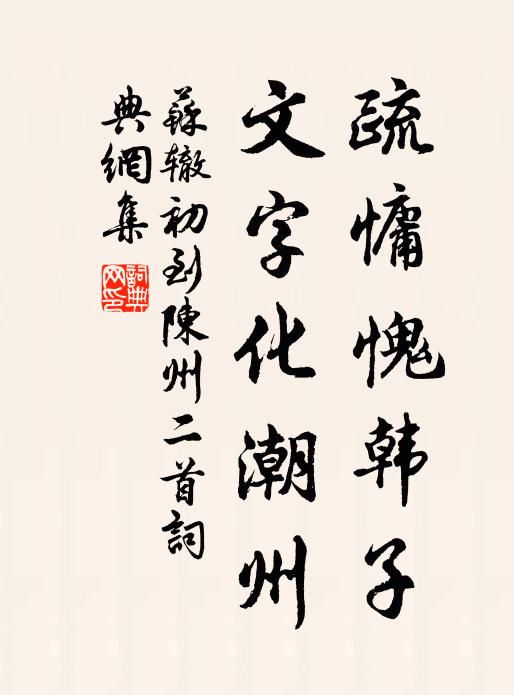 疏慵愧韩子
文字化潮州
蘇辙初到陳州二首詞
典網集
詞典
网印